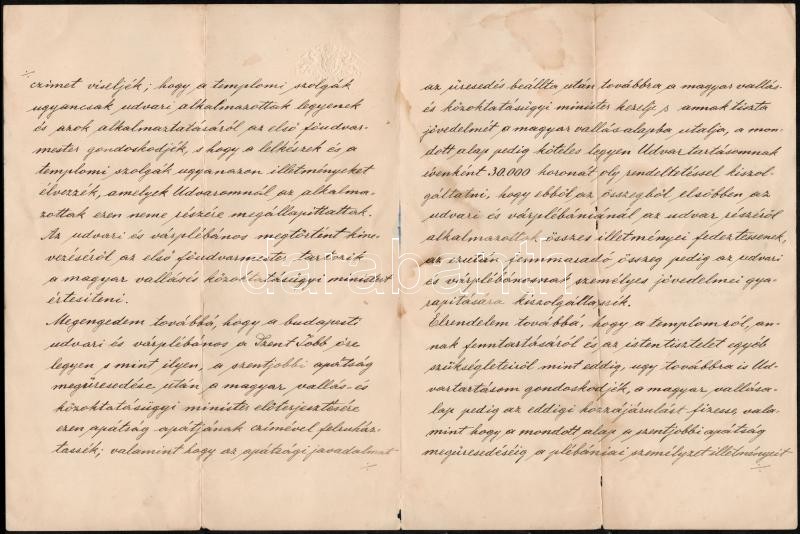 czimet viseljék; hogy a templomi szolgák
ugyancsak udvari alkalmazottak legyenek
és azok alkalmaztatásáról az első főudvar-
mester gondoskodjék, s hogy a lelkészek és a
templomi szolgák ugyanazon illetményeket
élvezzék, amelyek Udvaromnál az alkalma-
zottak ezen neme részére megállapíttattak.
Az udvari és várplébános megtörtént kine-
vezéséről az első főudvarmester tartozik
a magyar vallás és közoktatásügyi ministert
értesíteni.
Megengedem továbbá, hogy a budapesti
udvari és várplébános a Szent Jobb őre
legyen s mint ilyen, a szentjobbi apátság
megüresedése után a magyar vallás- és
közoktatásügyi minister előterjesztésére
ezen apátság apátjának czimével felruház-
tassék; valamint hogy az apátsági javadalmat
az üresedés beállta után továbbra a magyar vallás-
és közoktatásügyi minister kezelje s annak tiszta
jövedelmét a magyar vallásalapba utalja, a mon-
dott alap pedig köteles legyen Udvartartásomnak
évenként 30.000 koronát oly rendeltetéssel kiszol-
gáltatni, hogy ebből az összegből elsőbben az
udvari és várplébániánál az udvar részéről
alkalmazottak összes illetményei fedeztessenek,
az ezután fennmaradó összeg pedig az udvari
és várplébánosnak személyes jövedelmei gya-
rapítására kiszolgáltassék.
Elrendelem továbbá, hogy a templomról, an-
nak fenntartásáról és az istentisztelet egyéb
szükségleteiről mint eddig, ugy továbbra is Ud-
vartartásom gondoskodjék, a magyar vallás a-
lap pedig az eddigi hozzájárulást fizesse, vala-
mint hogy a mondott alap a szentjobbi apátság
megüresedéséig a plébániai személyzet illetményeit
darabanth